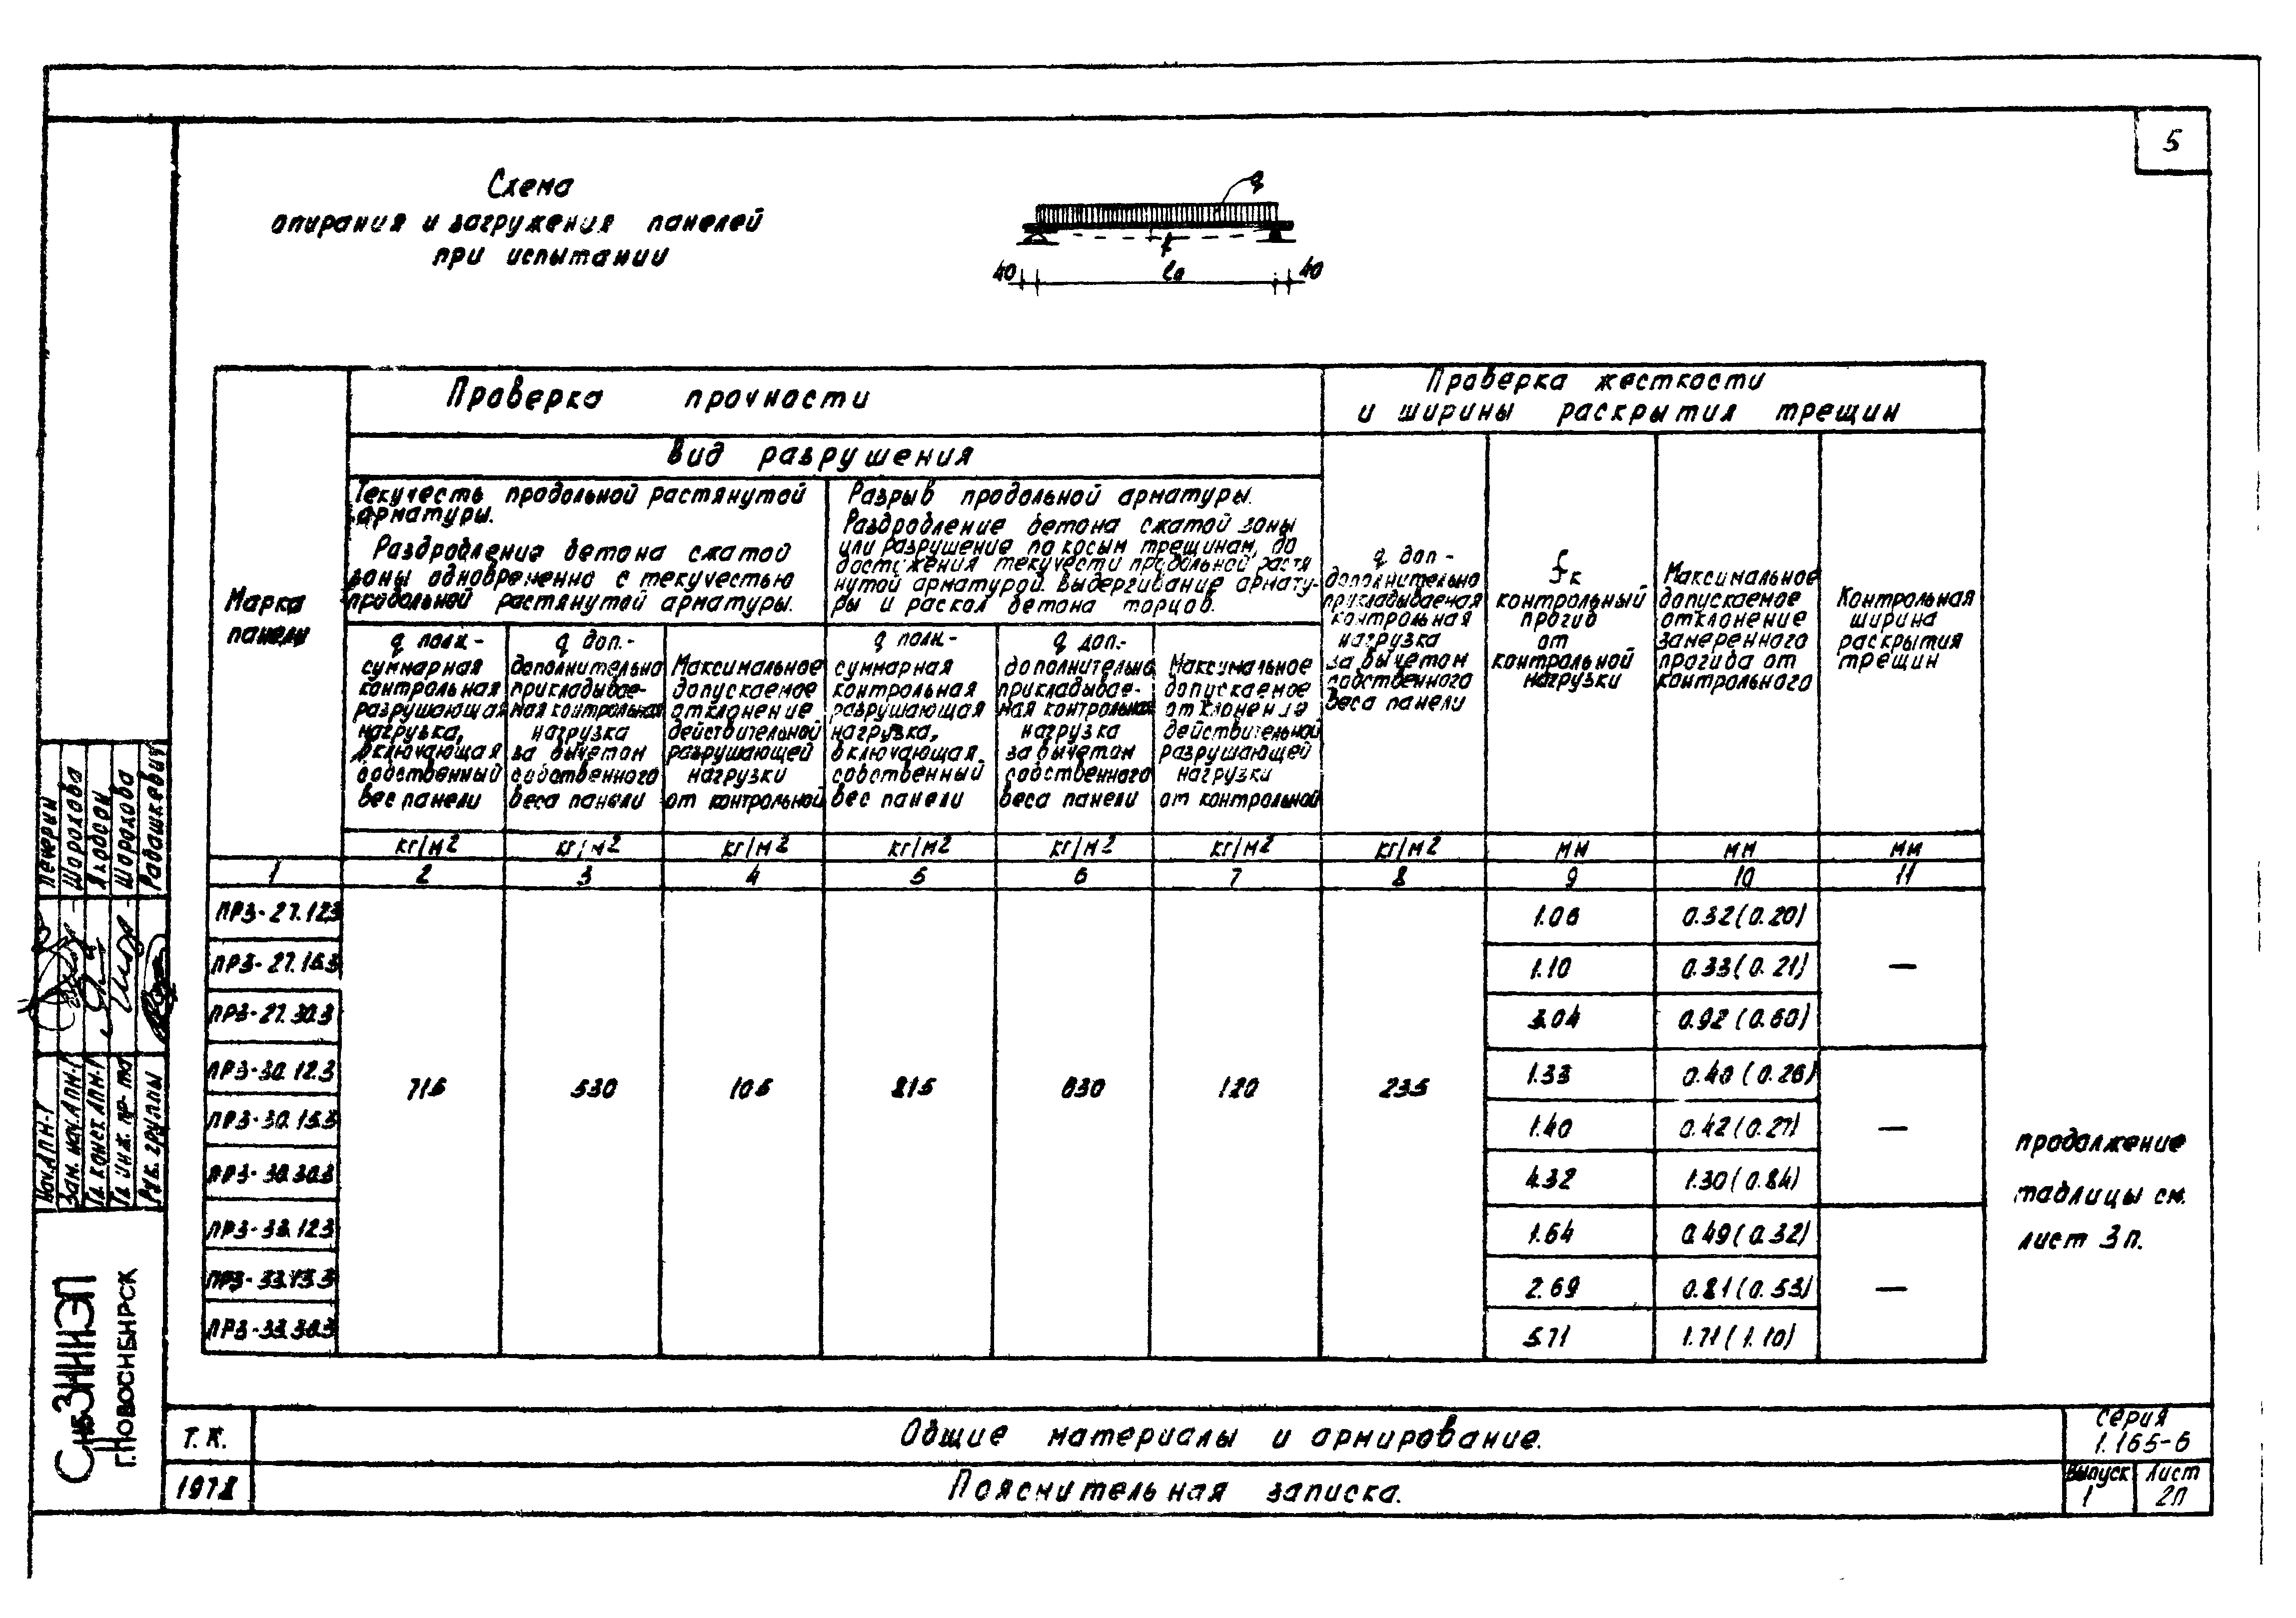 5
Схема
опирания и загружения панелей
при испытании
q
f
40 l₀ 40
Марка
панели
Проверка прочности
Проверка жесткости
и ширины раскрытия трещин
Вид разрушения
Текучесть продольной растянутой
арматуры.
Раздробление бетона сжатой
зоны одновременно с текучестью
продольной растянутой арматуры.
Разрыв продольной арматуры.
Раздробление бетона сжатой зоны
или разрушение по косым трещинам, до
достижения текучести продольной растя
нутой арматурой. Выдергивание армату-
ры и раскол бетона торцов.
q полн.-
суммарная
контрольная
разрушающая
нагрузка,
включающая
собственный
вес панели
q доп.-
дополнительно
прикладывае-
мая контрольная
нагрузка
за вычетом
собственного
веса панели
Максимальное
допускаемое
отклонение
действительной
разрушающей
нагрузки
от контрольной
q полн.-
суммарная
контрольная
разрушающая
нагрузка,
включающая
собственный
вес панели
q доп.-
дополнительно
прикладывае-
мая контрольная
нагрузка
за вычетом
собственного
веса панели
Максимальное
допускаемое
отклонение
действительной
разрушающей
нагрузки
от контрольной
q доп-
дополнительно
прикладываемая
контрольная
нагрузка
за вычетом
собственного
веса панели
fк
контрольный
прогиб
от
контрольной
нагрузки
Максимальное
допускаемое
отклонение
замеренного
прогиба от
контрольного
Контрольная
ширина
раскрытия
трещин
кг/м2 кг/м2 кг/м2 кг/м2 кг/м2 кг/м2 кг/м2 мм мм мм
1 2 3 4 5 6 7 8 9 10 11
ПР3-27.12.3 1.06 0.32(0.20)
ПР3-27.15.3 1.10 0.33(0.21) —
ПР3-27.30.3 3.04 0.92(0.60)
ПР3-30.12.3 715 530 105 815 630 120 235 1.33 0.40(0.26)
ПР3-30.15.3 1.40 0.42(0.27) —
ПР3-30.30.3 4.32 1.30(0.84)
ПР3-33.12.3 1.64 0.49(0.32)
ПР3-33.15.3 2.69 0.81(0.53) —
ПР3-33.30.3 5.71 1.71(1.10)
продолжение
таблицы см.
лист 3п.
Нач.АПМ-1 Печерин
Зам. нач.АПМ-1 Шорохова
Гл. конст. АПМ-1 Якобсон
Гл. инж. пр-та Шорохова
Рук. группы Радашкевич
СибЗНИИЭП
г.Новосибирск
Т.К.
Общие материалы и армирование.
Серия
1.165-6
Пояснительная записка.
Выпуск
1
Лист
2п